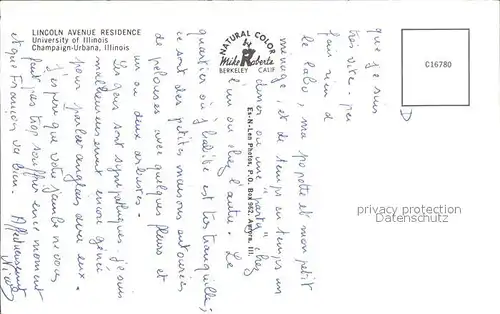 LINCOLN AVENUE RESIDENCE
University of Illinois
Champaign-Urbana, Illinois
NATURAL COLOR
Mike Roberts
BERKELEY CALIF
Es-N-Len Photos, P.O. Box 962, Aurora, Ill.
C16780
privacy protection
Datenschutz
que je suis
très
fais rien d
le labo, ma popote et mon petit
ménage, et de temps en temps un
diner ou une "party" chez
l'un ou chez l'autre. Le
quartier où j'habite est très tranquille ;
ce sont des petites maisons entourées
de pelouses avec quelques fleurs et
un ou deux arbustes.
Les gens sont sympathiques. je suis
malheureusement encore gênée
pour parler anglais avec eux.
J'espère que votre jambe ne vous
fait pas trop souffrir en ce moment
et que François va bien. Affectueusement